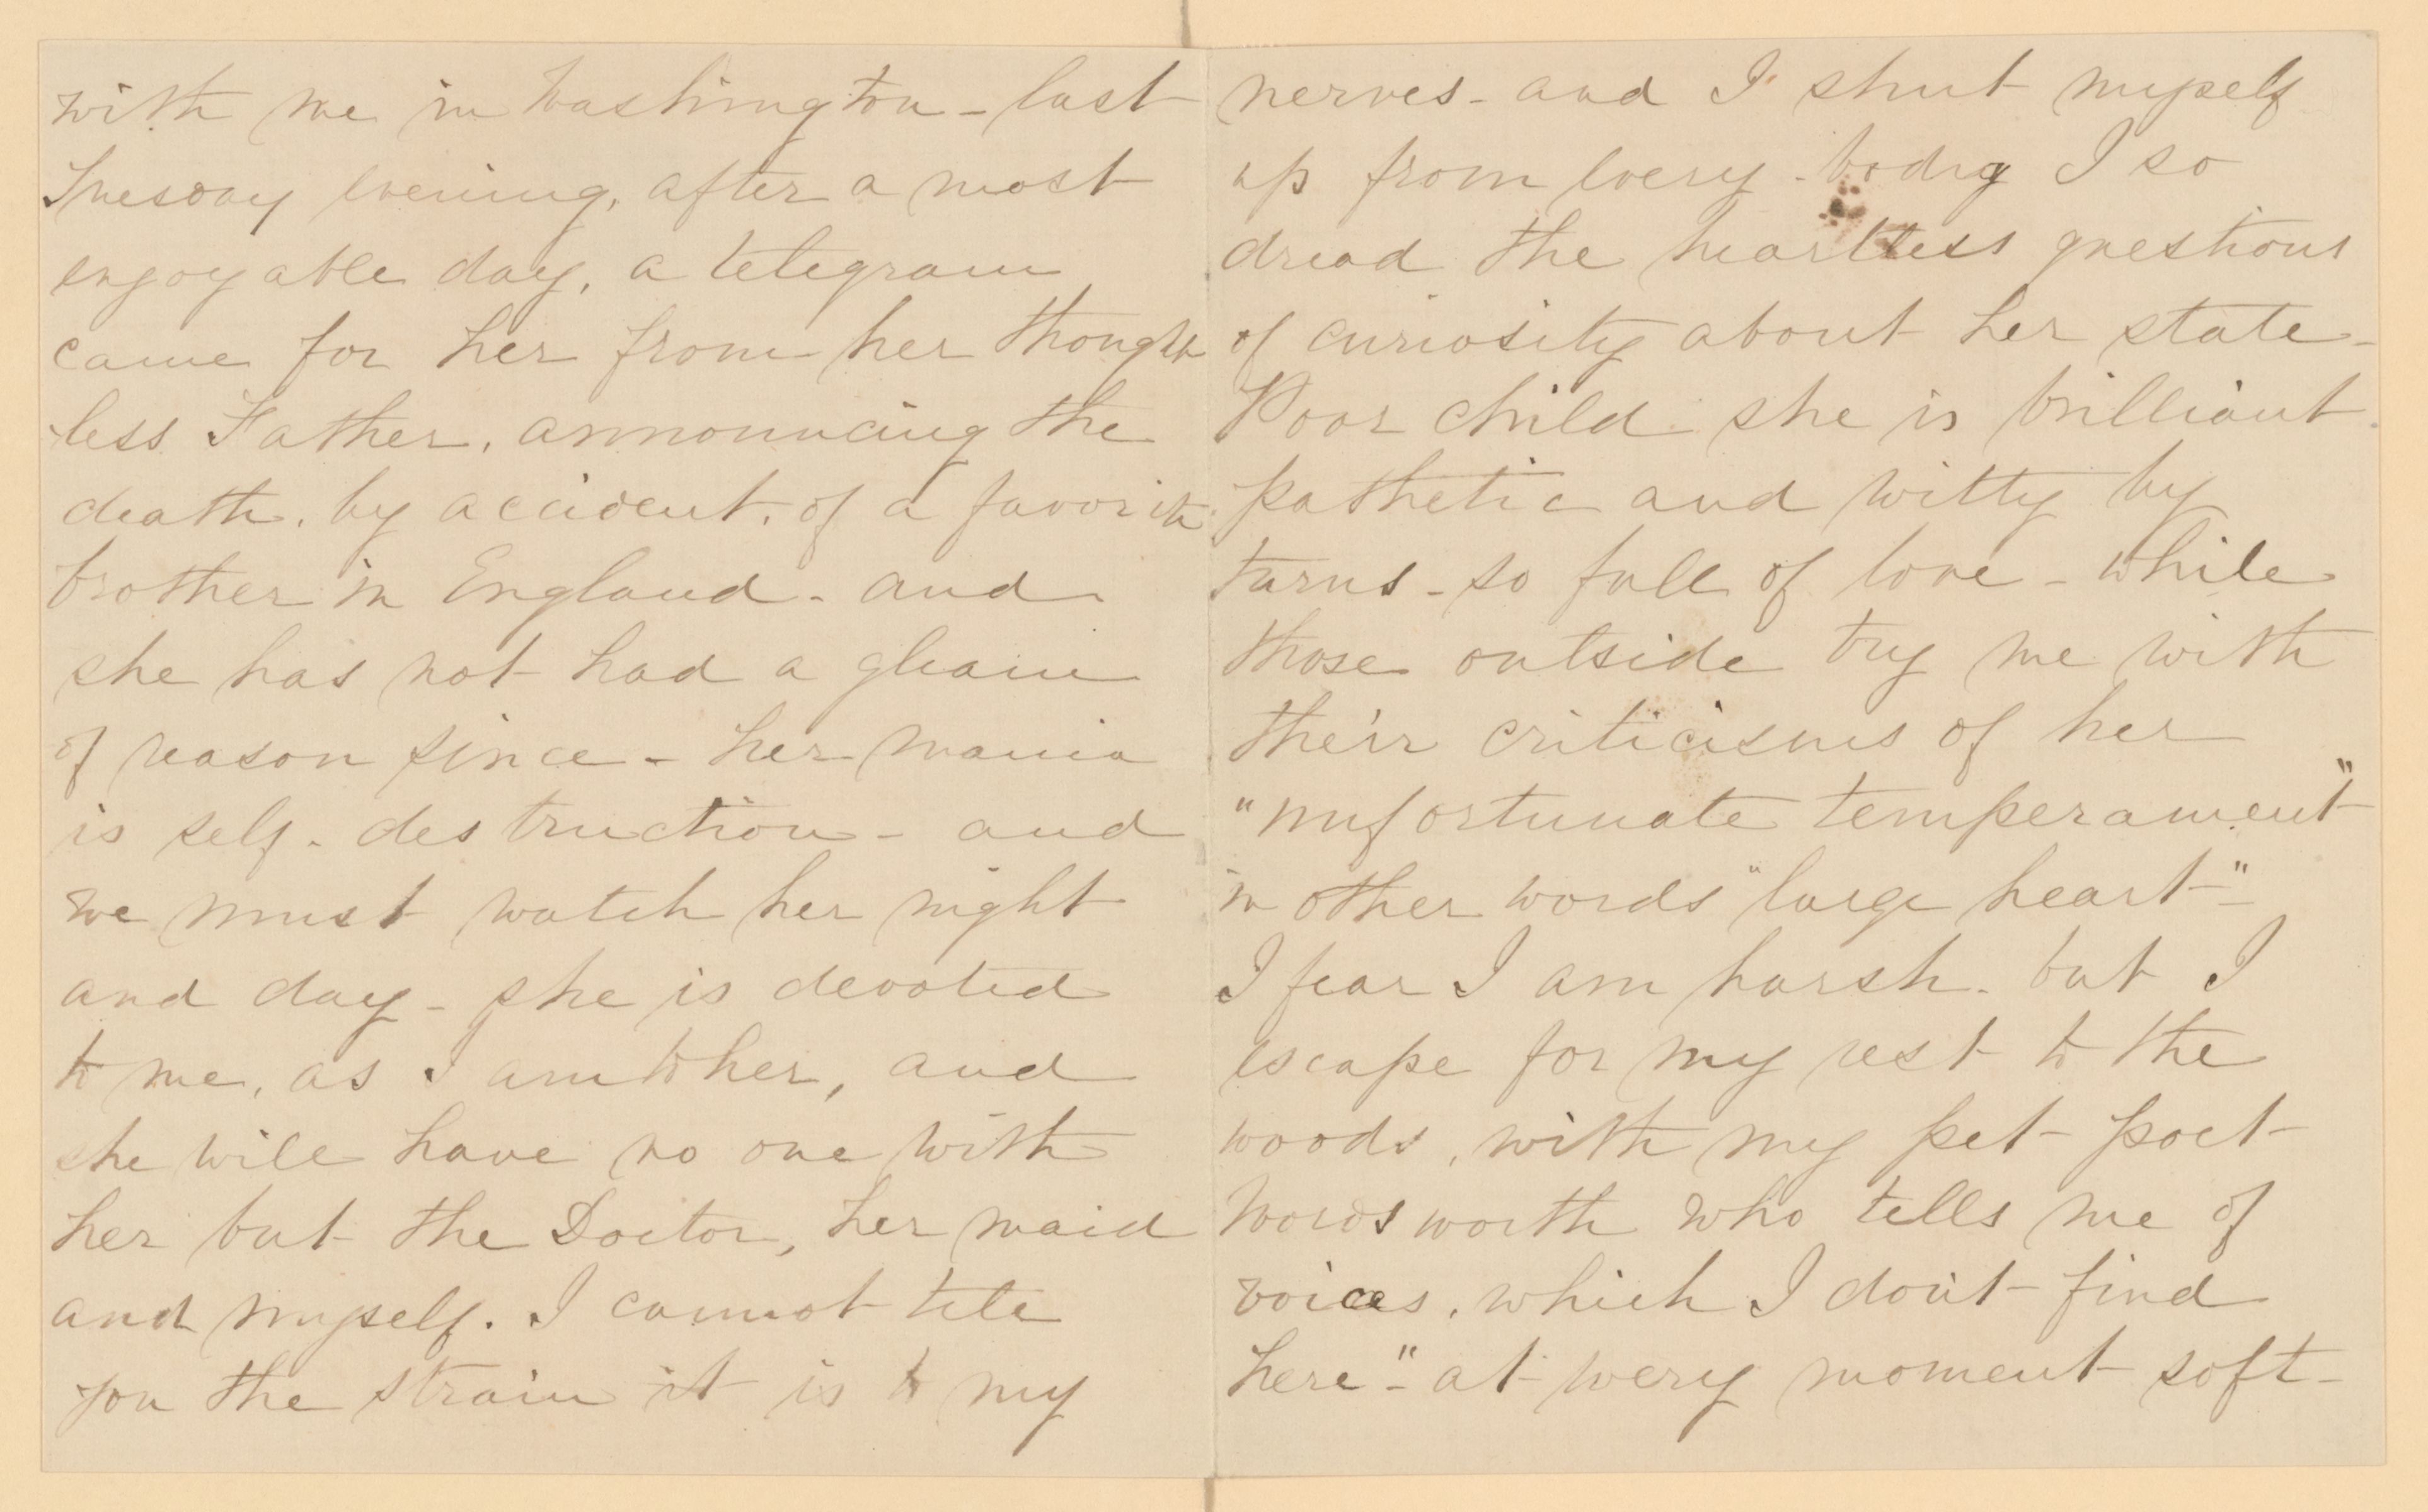 with me in Washington - last
Tuesday evening, after a most
enjoyable day, a telegram
came for her from her thought
less Father, announcing the
death, by accident, of a favorite
brother in England - and
she has not had a gleam
of reason since - her mania
is self-destruction - and
we must watch her night
and day - she is devoted
to me, as I am to her, and
she will have no one with
her but the Doctor, her maid
and myself. I cannot tell
you the strain it is to my
nerves - and I shut myself
up from every-body I so
dread the heartless questions
of curiosity about her state -
Poor child she is brilliant
pathetic and witty by
turns - so full of love - while
those outside try me with
their criticisms of her
"unfortunate temperament"
in other words "large heart" -
I fear I am harsh - but I
escape for my rest to the
woods, with my pet poet
Wordsworth who tells me of
voices, which I don't find
here" - at every moment soft -